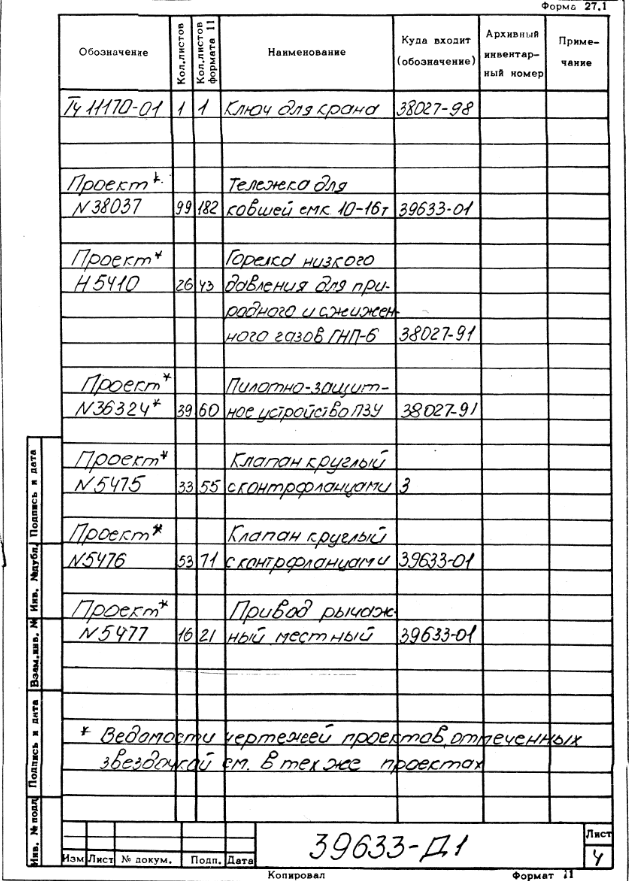 Форма 27.1
Обозначение Кол.листов Кол.листов формата 11 Наименование Куда входит (обозначение) Архивный инвентарный номер Примечание
Ту 11170-01 1 1 Ключ для крана 38027-98
Проект* Тележка для
N38037 99 182 ковшей емк. 10-16т 39633-01
Проект* Горелка низкого
Н5410 26 43 давления для при-
родного и сжижен-
ного газов ГНП-6 38027-91
Проект* Пилотно-защит-
N36324* 39 60 ное устройство ПЗУ 38027-91
Проект* Клапан круглый
N5475 33 55 с контрфланцами 3
Проект* Клапан круглый
N5476 53 71 с контрфланцами 39633-01
Проект* Привод рычаж-
N5477 16 21 ный местный 39633-01
* Ведомости чертежей проектов, отмеченных
звездочкой см. в тех же проектах
Инв. № подл Подпись и дата Взам.инв. № Инв. №дубл. Подпись и дата
39633-Д1
Лист
4
Изм Лист № докум. Подп. Дата
Копировал Формат 11